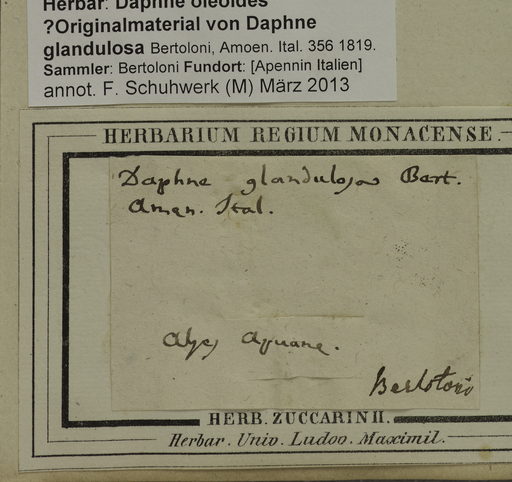 Herbar: Daphne oleoides
?Originalmaterial von Daphne
glandulosa Bertoloni, Amoen. Ital. 356 1819.
Sammler: Bertoloni Fundort: [Apennin Italien]
annot. F. Schuhwerk (M) März 2013
HERBARIUM REGIUM MONACENSE.
Daphne glandulosa Bert.
Amen. Ital.
Alpes Apuane.
Bertoloni
HERB. ZUCCARINII.
Herbar. Univ. Ludov. Maximil.